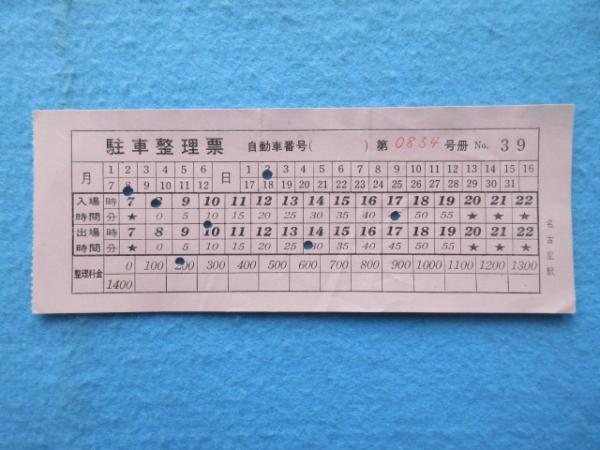 駐車整理票 自動車番号( ) 第 0854 号册 No. 39
月 1 2 3 4 5 6 日 1 2 3 4 5 6 7 8 9 10 11 12 13 14 15 16
7 8 9 10 11 12 17 18 19 20 21 22 23 24 25 26 27 28 29 30 31
入場 時 7 8 9 10 11 12 13 14 15 16 17 18 19 20 21 22
時間 分 ★ 0 5 10 15 20 25 30 35 40 45 50 55 ★ ★ ★
出場 時 7 8 9 10 11 12 13 14 15 16 17 18 19 20 21 22
時間 分 ★ 0 5 10 15 20 25 30 35 40 45 50 55 ★ ★ ★
整理料金 0 100 200 300 400 500 600 700 800 900 1000 1100 1200 1300
1400
名古屋駅